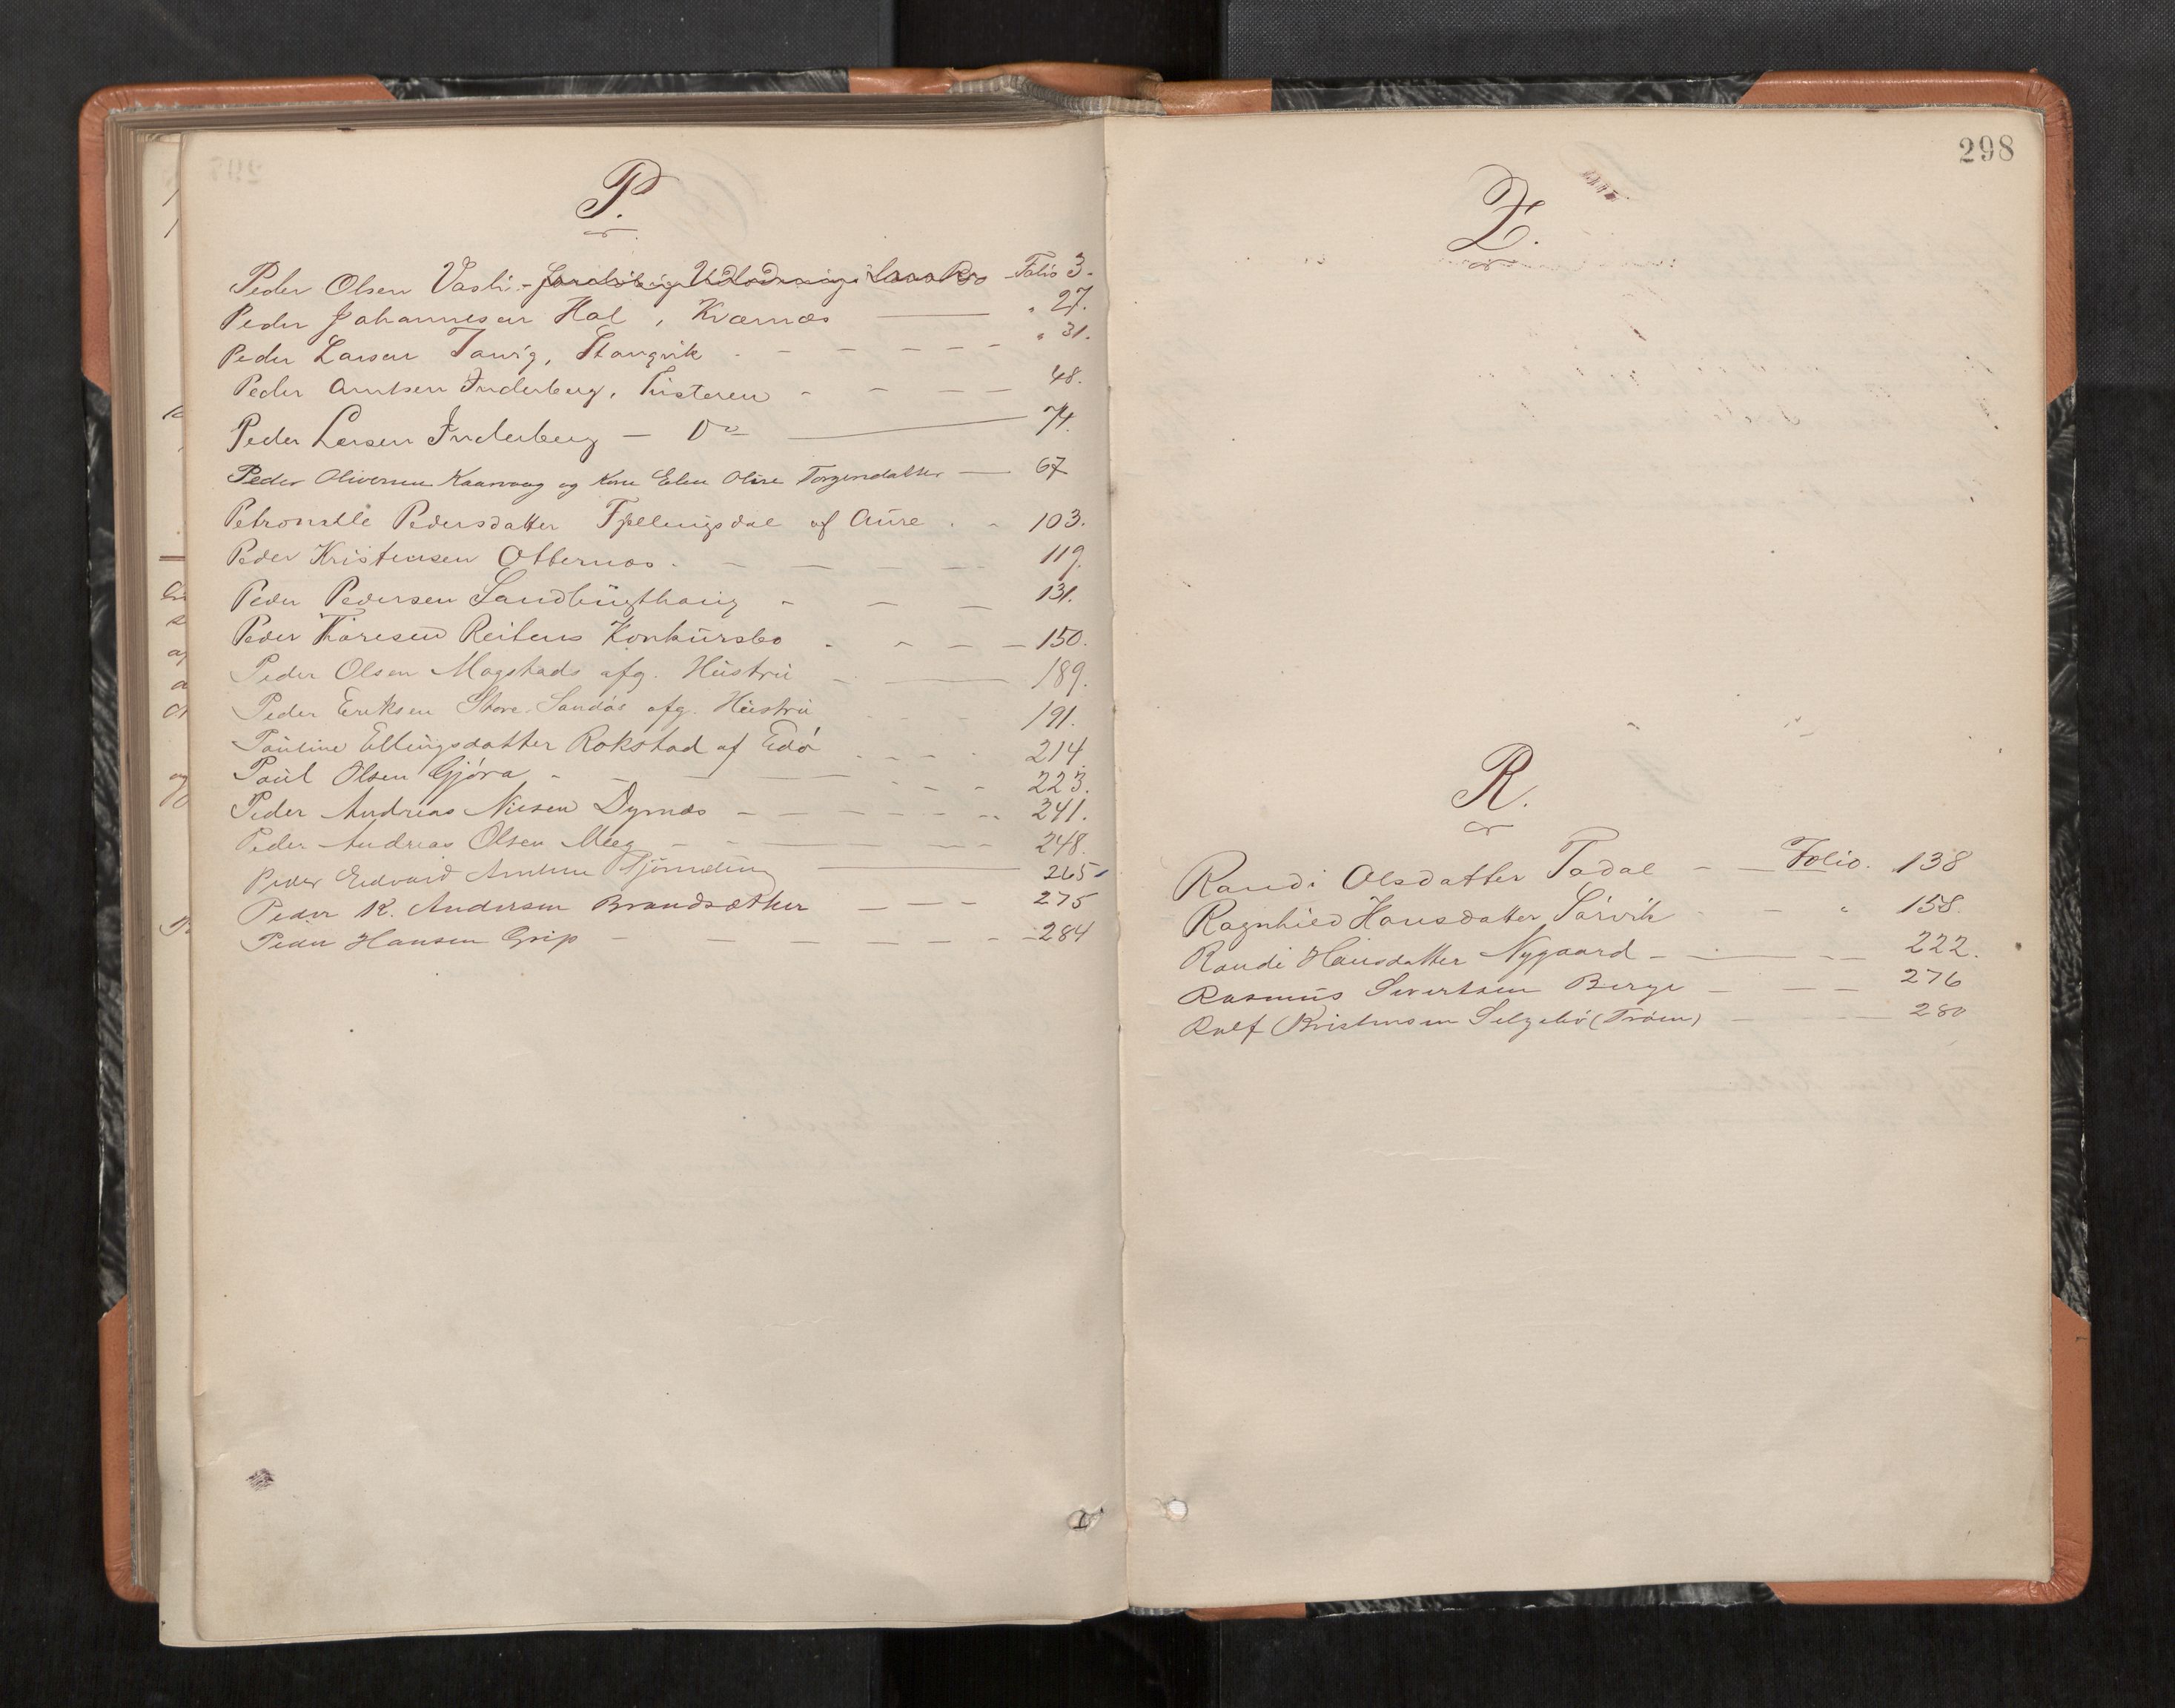 P.
Peder Olsen Vasli - Folio 3.
Peder Johannesen Hol, Kværnæs " 27.
Peder Larsen Tanvig, Stangvik " 31.
Peder Arntsen Inderberg, Tusteren 48.
Peder Larsen Inderberg - Do 74.
Peder Oliversen Kaarvaag og Kone Elen Oline Torgersdatter 67
Petronelle Pedersdatter Fjellingsdal af Aure 103.
Peder Kristensen Otternæs 119.
Peder Pedersen Sandbugthaug 131.
Peder Toresen Reitens Konkursbo 150.
Peder Olsen Magstads afg. Hustru 189.
Peder Eriksen Store-Sandøs afg. Hustru 191.
Pauline Ellingsdatter Rokstad af Edø 214.
Paul Olsen Gjöra 223.
Peder Andreas Nilsen Dyrnæs 241.
Peder Andreas Olsen Meeg 248.
Peder Edvard Arntsen 265
Peder K. Andersen Brandsæther 275
Peder Hansen Grip 284
298
R.
Randi Olsdatter Todal Folio. 138
Ragnhild Hansdatter Sørvik " 158.
Randi Hansdatter Nygaard 222.
Rasmus Sivertsen Berge 276
Rolf Kristensen Selgebø (Trøen) 280